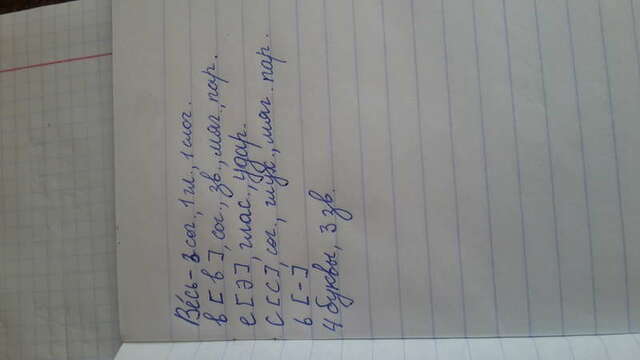 Ве́сь - 3 сог., 1 гл., 1 слог.
в [в], сог., зв., мяг., пар.
е [э], глас., удар.
С [с], сог., глух., мяг. пар.
ь [-]
4 буквы, 3 зв.